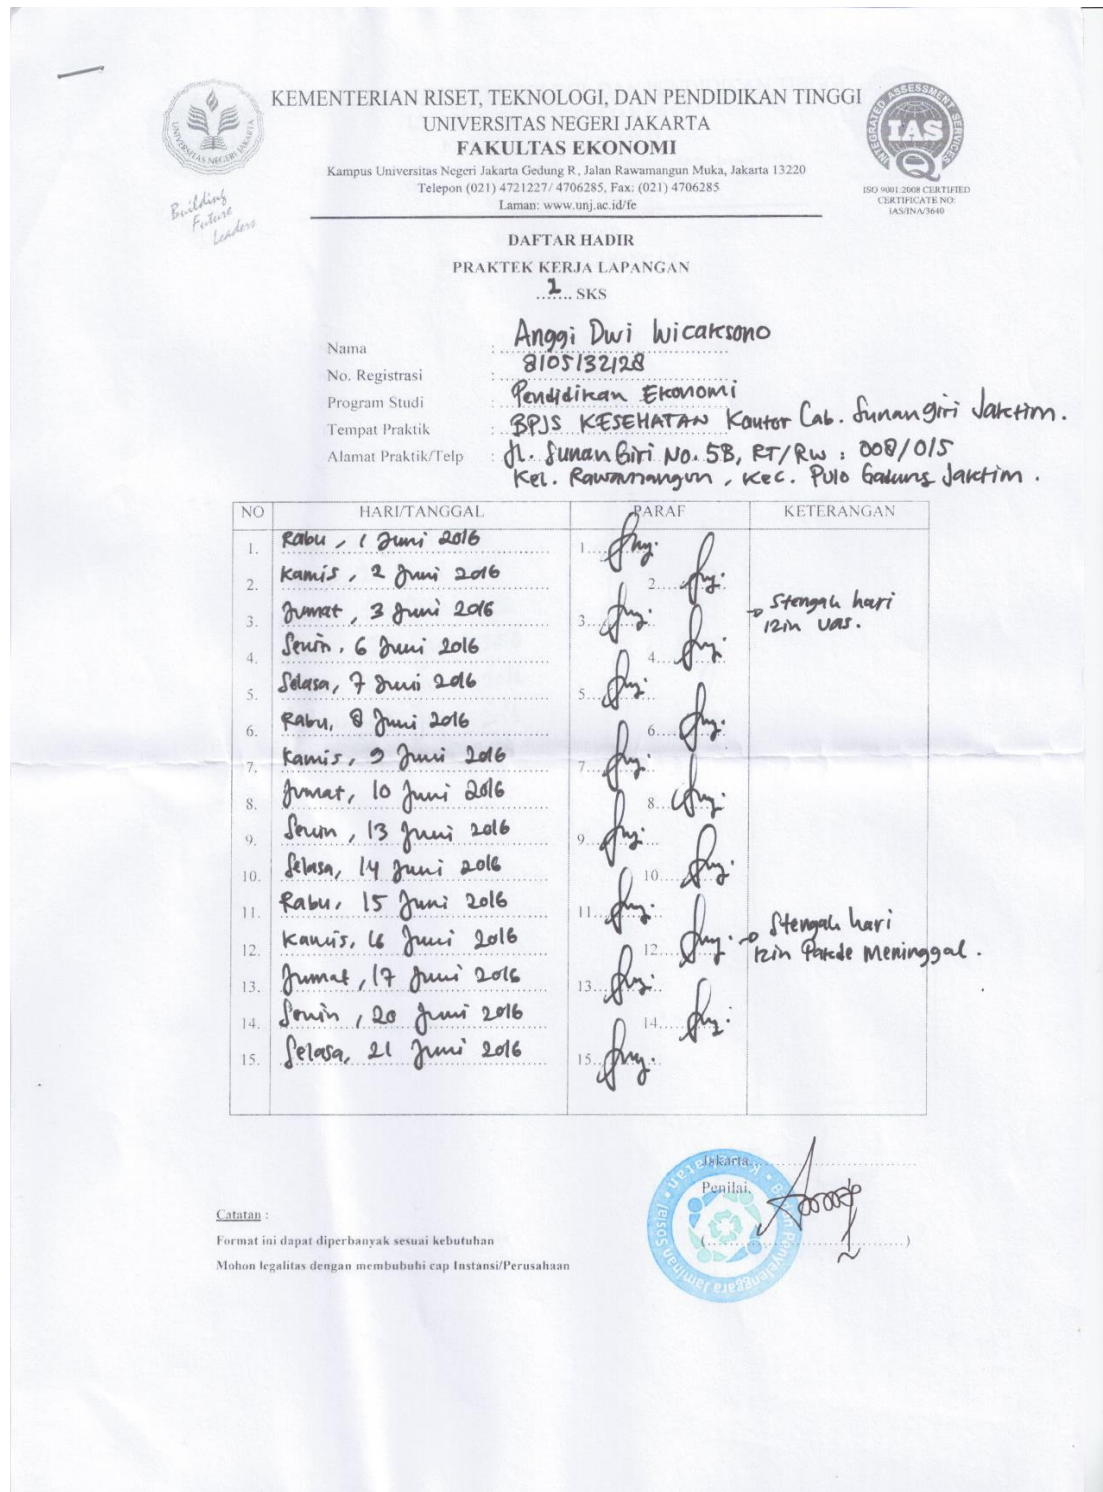 KEMENTERIAN RISET, TEKNOLOGI, DAN PENDIDIKAN TINGGI
UNIVERSITAS NEGERI JAKARTA
FAKULTAS EKONOMI
Kampus Universitas Negeri Jakarta Gedung R, Jalan Rawamangun Muka, Jakarta 13220
Telepon (021) 4721227/ 4706285, Fax: (021) 4706285
Laman: www.unj.ac.id/fe
UNIVERSITAS NEGERI JAKARTA
Building
Future
Leaders
INTEGRATED ASSESSMENT SERVICES
IAS
ISO 9001:2008 CERTIFIED
CERTIFICATE NO:
IAS/INA/3640
DAFTAR HADIR
PRAKTEK KERJA LAPANGAN
SKS
Nama : Anggi Dwi Wicaksono
No. Registrasi : 8105132128
Program Studi : Pendidikan Ekonomi
Tempat Praktik : BPJS KESEHATAN Kantor Cab. Sunan Giri Jaktim.
Alamat Praktik/Telp : Jl. Sunan Giri No. 5B, RT/RW : 008/015
Kel. Rawamangun, Kec. Pulo Gadung Jaktim.
NO HARI/TANGGAL PARAF KETERANGAN
1. Rabu, 1 Juni 2016 1.
2. Kamis, 2 Juni 2016 2.
3. Jumat, 3 Juni 2016 3. Stengah hari
izin UAS.
4. Senin, 6 Juni 2016 4.
5. Selasa, 7 Juni 2016 5.
6. Rabu, 8 Juni 2016 6.
7. Kamis, 9 Juni 2016 7.
8. Jumat, 10 Juni 2016 8.
9. Senin, 13 Juni 2016 9.
10. Selasa, 14 Juni 2016 10.
11. Rabu, 15 Juni 2016 11.
12. Kamis, 16 Juni 2016 12. Stengah hari
izin Pakde Meninggal.
13. Jumat, 17 Juni 2016 13.
14. Senin, 20 Juni 2016 14.
15. Selasa, 21 Juni 2016 15.
Jakarta,
Penilai,
(....................)
Badan Penyelenggara Jaminan Sosial • Kesehatan
Catatan :
Format ini dapat diperbanyak sesuai kebutuhan
Mohon legalitas dengan membubuhi cap Instansi/Perusahaan